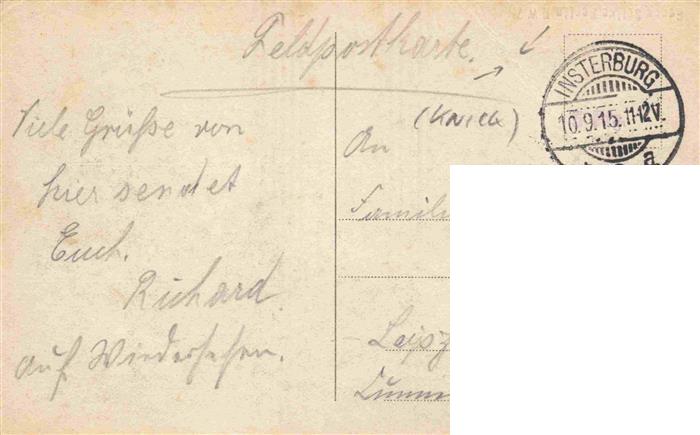 Feldpostkarte.
INSTERBURG
10.9.15.11-12V.
a
(KNICK)
Viele Grüße von
hier sendet
Euch.
Richard.
auf Wiedersehen.
An
Famili
Leipz